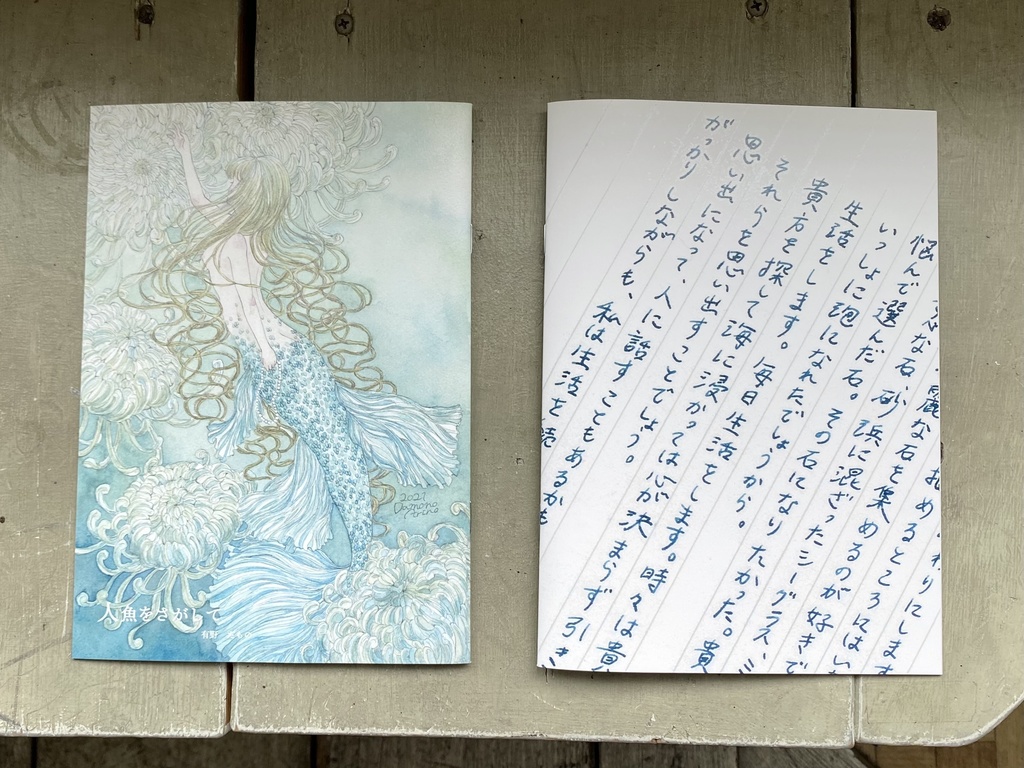 人魚をさがして
わりにします
めるところにはい
麗な石を集めるのが好きで
な石、砂浜に混ざったシーグラス、ミ
悩んで選んだ石。その石になりたかった。貴
いっしょに泡になれたでしょうから。
生活をします。毎日生活をします。時々は貴
貴方を探して海に浸かっては心が決まらず引き
それらを思い出すことでしょう。
思い出になって、人に話すこともあるかも
がっかりしながらも、私は生活を続